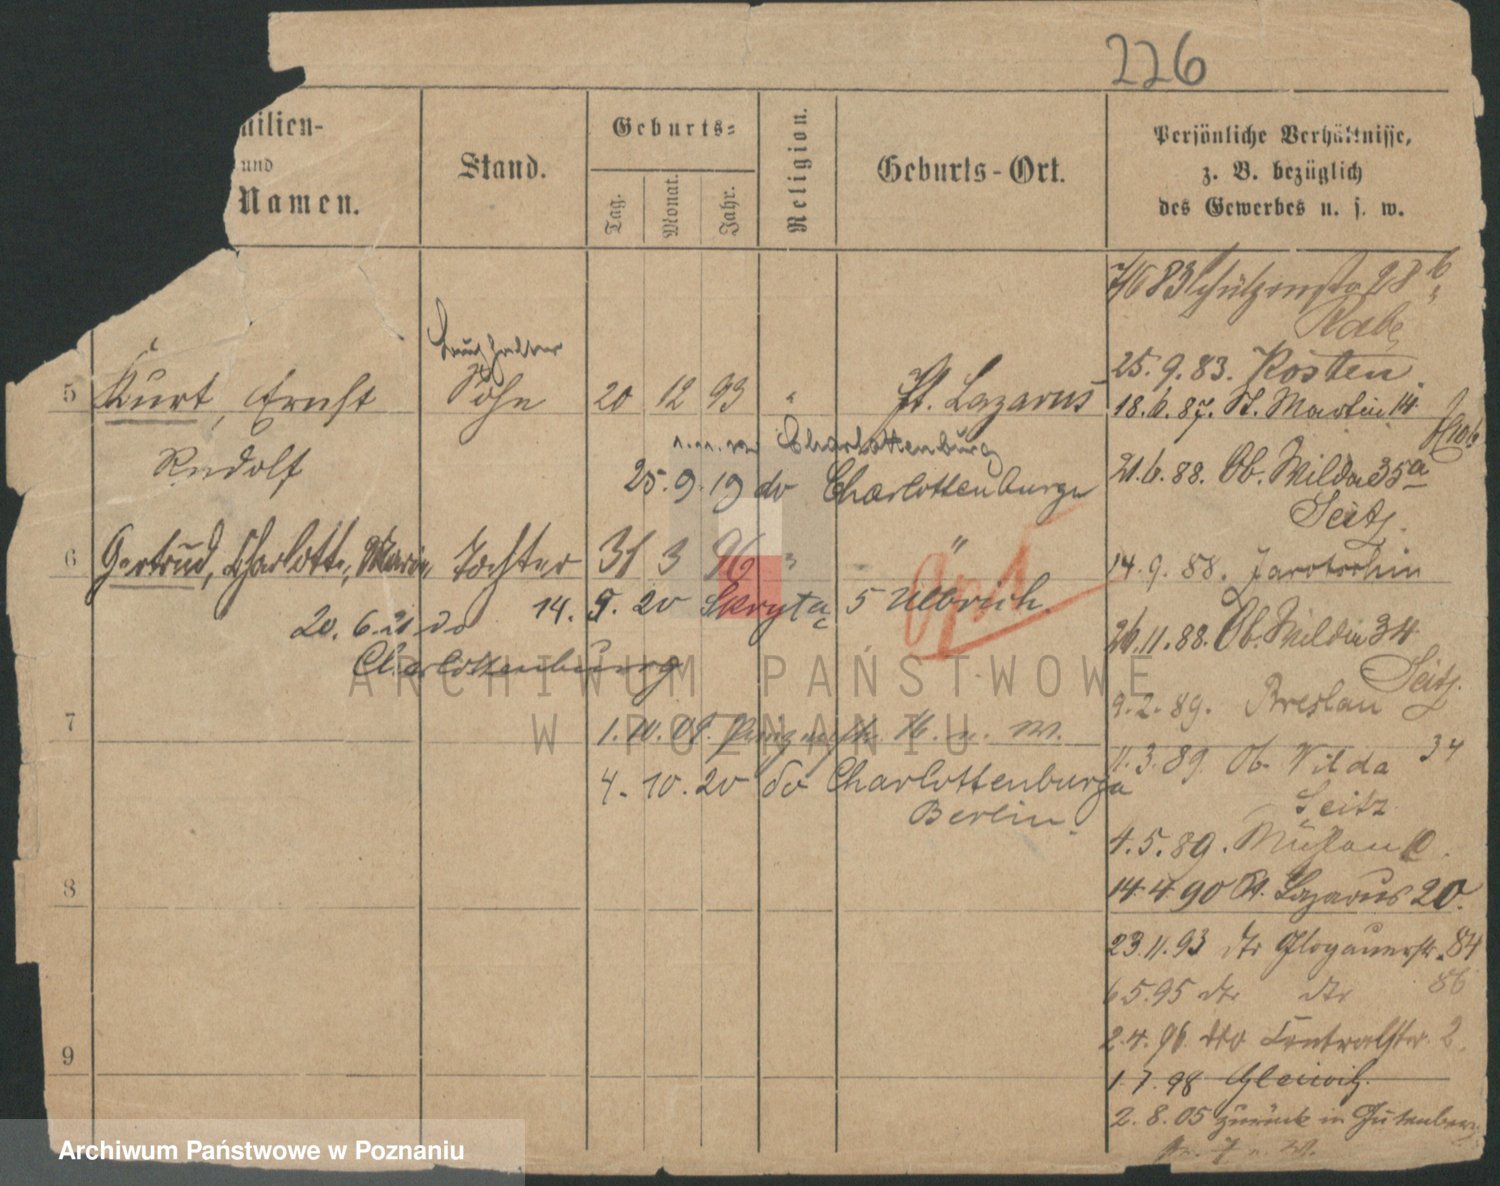 226
milien-
und
Namen.
Stand.
Geburts-
Tag.
Monat.
Jahr.
Religion.
Geburts-Ort.
Persönliche Verhältnisse,
z. B. bezüglich
des Gewerbes u. s. w.
83 Schützenstr 28 b
Rabe
25. 9. 83. Kosten
18. 6. 87. St. Martin 14
21. 6. 88. Ob. Wilda 35a
Seitz.
14. 9. 88. Jarotschin
26. 11. 88. Ob. Wilda 34
Seitz.
9. 2. 89. Breslau
11. 3. 89. Ob. Wilda 34
Seitz
4. 5. 89.
14. 4. 90 St. Lazarus 20.
23. 11. 93 dto Glogauerstr. 84
6 5. 95 dto dto 86
2. 4. 96. dto Centralstr. 2.
1. 7. 98 Gleiwitz.
2. 8. 05 zurück in Gutenberg
Buchhalter
5 Kurt, Ernst Sohn 20 12 93 " St. Lazarus
Rudolf
Charlottenburg
25. 9. 19 do Charlottenburg
6 Gertrud, Charlotte, Marie, Tochter 31 3 96 " "
14. 9. 20 Skryta 5 Ulbrich.
20. 6. 21 do
Charlottenburg
7
1. 10. 09.
4. 10. 20 do Charlottenburg
Berlin.
8
9
ARCHIWUM PAŃSTWOWE
W POZNANIU
Archiwum Państwowe w Poznaniu